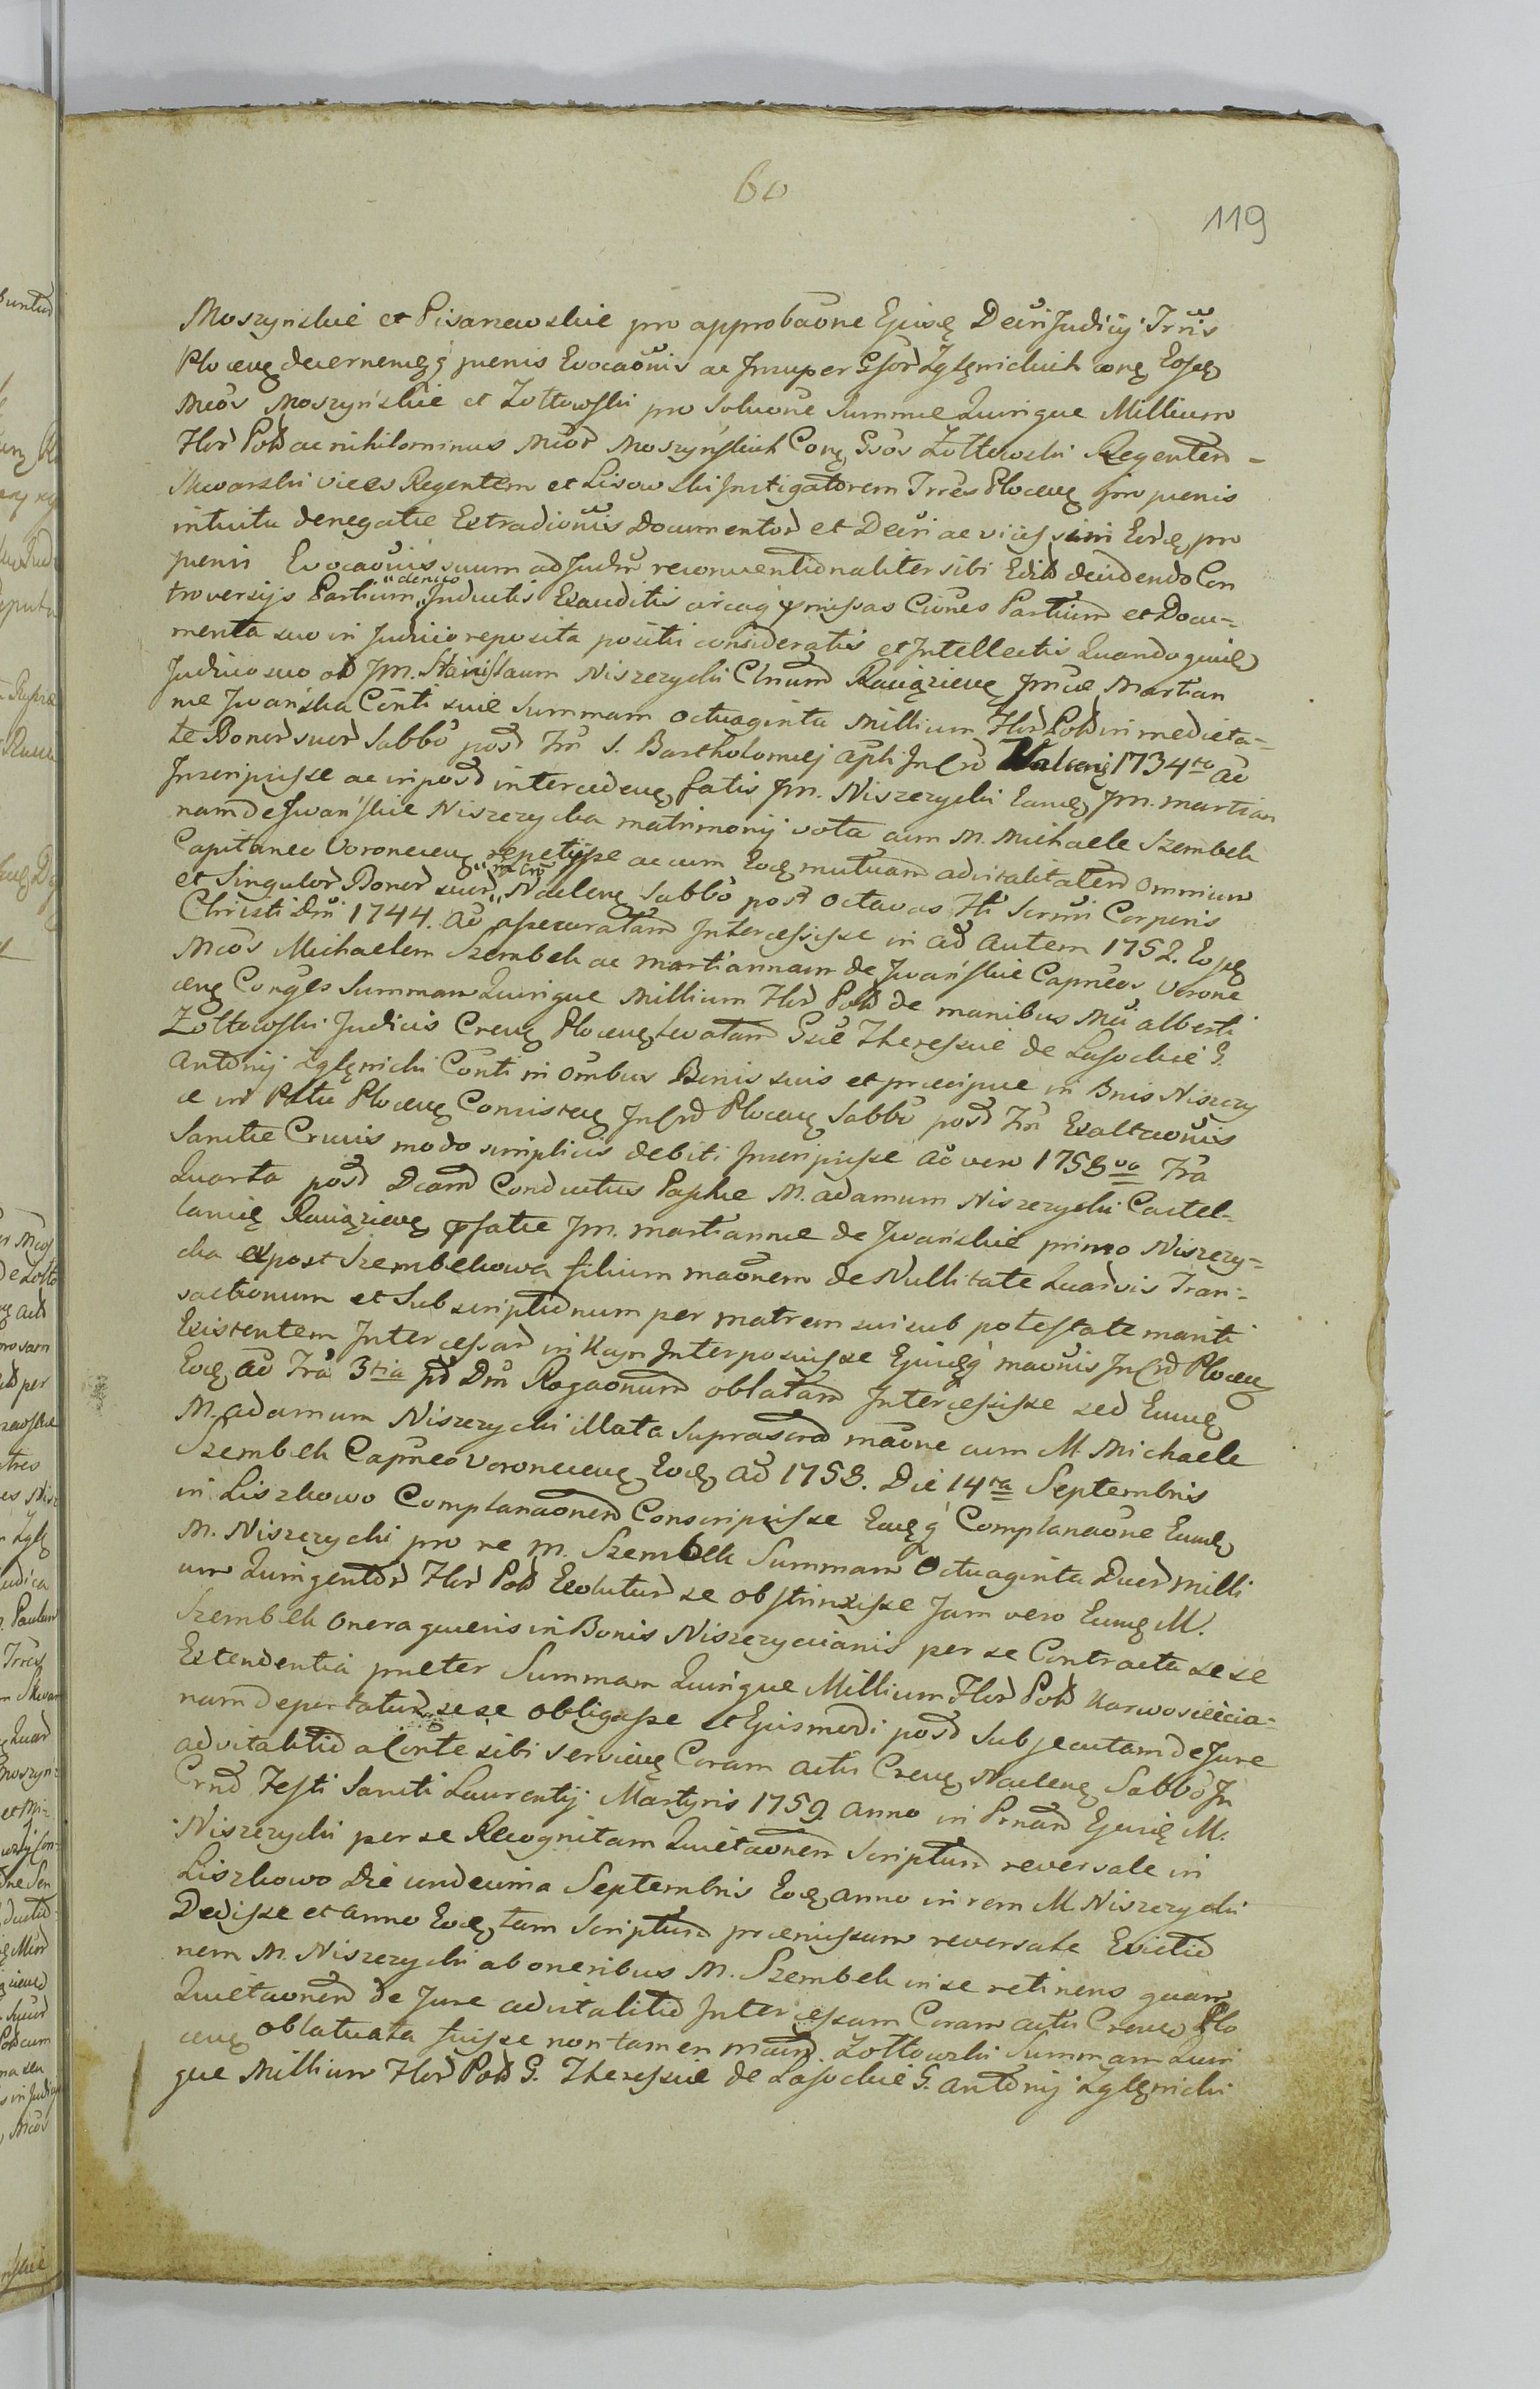 60
119
Moszyńskie et Pisarzewskie pro approbaone Ejusq Decri Judicij Trris
Ploceng decernemqq poenis Evocaonis ac Insuper Gsor Zglęnickich conq Eosq
Mcos Moszyńskie et Zołtowski pro Soluone Summae Quinque Millium
Flor Pold ac nihilominus Mcor Moszyńskich Conq Gsos Zołtowski Regentem =
Skwarski vices Regentem et Lisowski Instigatorem Trres Ploceng pro poenis
intuitu denegatae Extradionis Documentor et Decri ac vicissim Eord pro
poenis Evocaonis suum ad Judm reconventionaliter sibi Edit decidendo Con
troversijs Partium denuo Inductis Exauditis circaq pmissas Ciones Partium et Docu=
menta suo in Judicio reposita positis consideratis et Intellectis Quandoquid
Judicio suo ob Jm. Stanislaum Niszczycki Clnum Raciązieng Jmae Martian
nae Jwańska Conti suae Summam Octuaginta Millium Flor Pold in medieta=
te Bonor suor Sabbo post Fm S. Bartholomaei Apli In Crd 1734to ao
Inscripisse ac in post interceden fatis Jm. Niszczycki Eamq Jm. Martian
nam de Jwańskie Niszczycka matrimonij vota cum M. Michaele Szembek
Capitaneo Voroneceng repetijsse ac cum Eoq mutuam advitalitatem Omnium
et Singulor Bonor suor in Crd Nacleng Sabbo post Octavas Fti Scrmi Corporis
Christi Dni 1744. ao assecuratam Intercessisse in ao autem 1752. Eosq
Mcos Michaelem Szembek ac Martiannam de Jwańskie Capneos Verone
ceng Conges Summam Quinque Millium Flor Pold de manibus Mci Alberti
Zołtowski Judicis Creng Ploceng levatam Gsae Theressiae de Lasockie G.
Antonij Zglęnicki Conti in Ombus Bonis suis et praecipue in Bnis Niszczy
ce in Pttu Ploceng Consisten In Crd Ploceng Sabbo post Fm Exaltaonis
Sanctae Crucis modo simplicis debiti Inscripsisse Ao vero 1758vo Fra
Quarta post Dcam Conductus Paschae M. Adamum Niszczycki Castel=
laniq Raciązieng pfatae Jm. Martiannae de Jwańskie primo Niszczy=
cka expost Szembekowa filium maonem de Nullitate Quarvis Tran=
sactionum et Subscriptionum per matrem sui sub potestate mariti
Existentem Intercessar in Ksm Interposuisse Ejusqq maonis In Crd Ploceng
Eoq Ao Fra 3tia pt Dm Rogaonum oblatam Intercessisse sed Eumq
M. Adamum Niszczycki illata Suprascrad maone cum M. Michaele
Szembek Capneo Voroneceng Eoq Ao 1758. Die 14ta Septembris
in Liszkowo Complanaonem Conscripsisse Eaqq Complanaone Eumq
M. Niszczycki pro re M. Szembek Summam Octuaginta Duor milli
um Quingentor Flor Pold Exolutur se obstrinxisse Jam vero Eumq M.
Szembek Onera quaevis in Bonis Niszczycianis per se Contracta sese
Extendentia praeter Summam Quinque Millium Flor Pold Karwosiecia=
nam deportatur sese obligasse et Ejusmodi post subsecutam de Jure
advitalitio a Conte sibi servieng Coram actis Creng Nacleng Sabbo In
Crno Festi Sancti Laurentij Martyris 1759 anno in Prnam Ejusq M.
Niszczycki per se Recognitam Quietaonem Scriptum reversale in
Liszkowo Die undecima Septembris Eoq anno in rem M. Niszczycki
Dedisse et anno Eoq tam Scriptum praemissum reversale Evictio
nem M. Niszczycki ab oneribus M. Szembek in se retinens quam
Quietaonem de Jure advitalitio Intercessam Coram actis Creng Plo
ceng oblatuata fuisse non tamen Zołtowski Summam Quin
que Millium Flor Pold G. Theressiae de Lasockie G. Antonij Zglęnicki